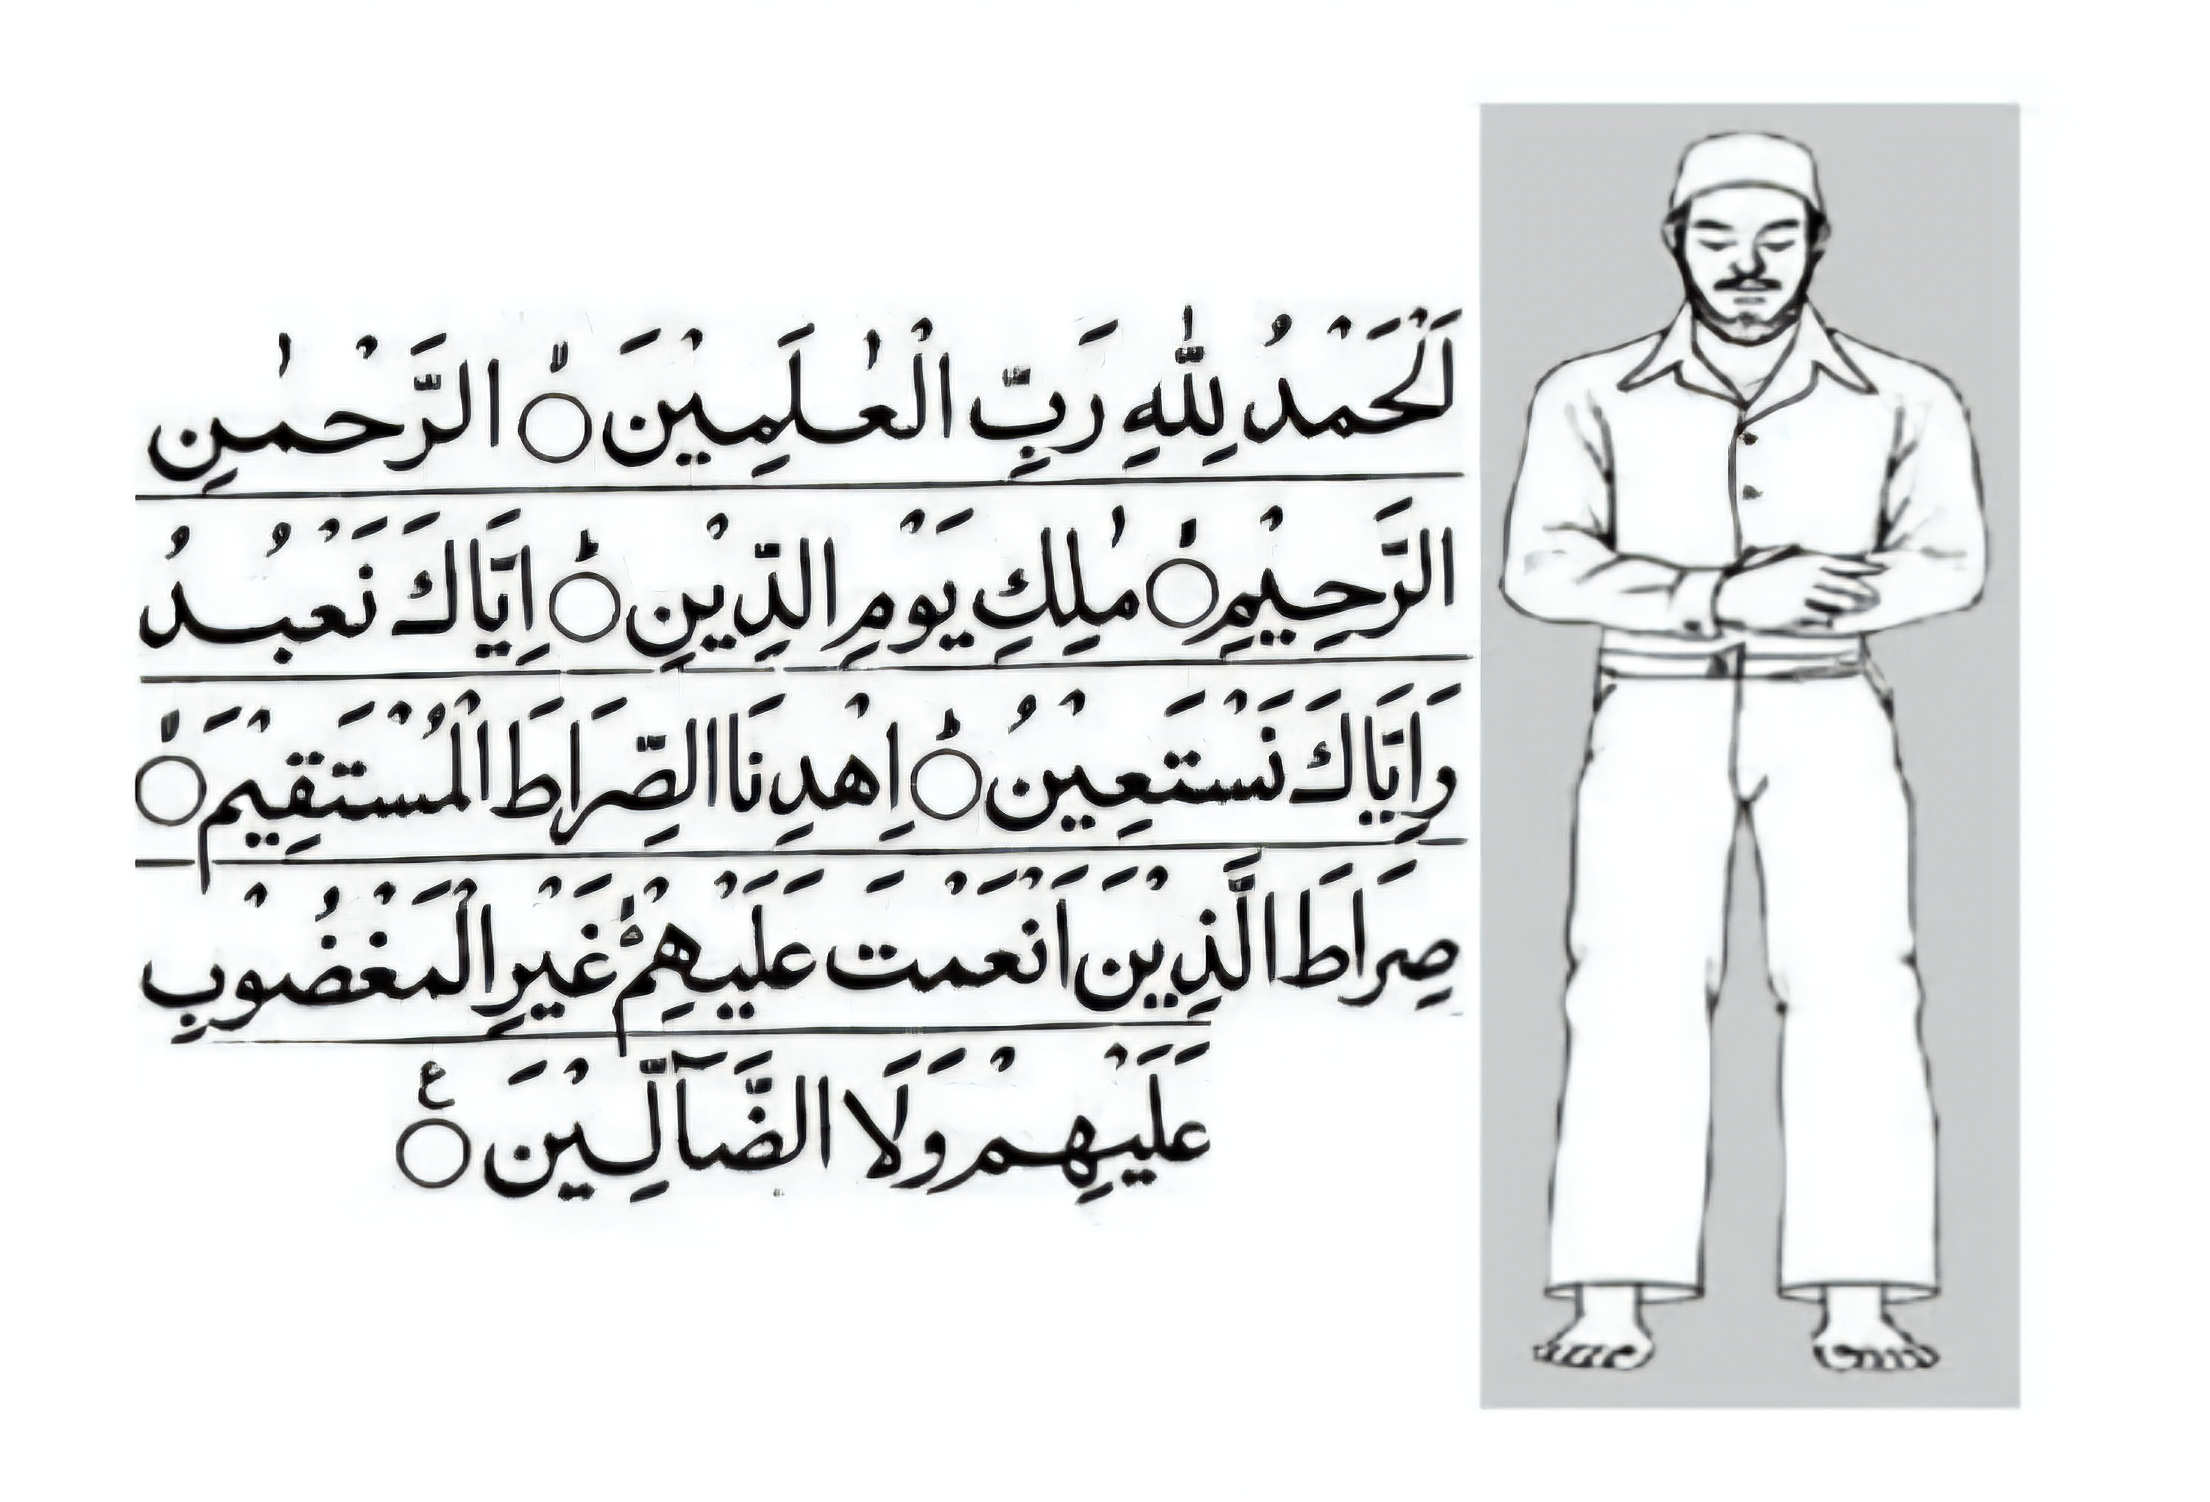 لَحَمْدُ لِلّٰهِ رَبِّ الْعٰلَمِيْنَ ۙ○ الرَّحْمٰنِ
الرَّحِيْمِ ۙ○ مٰلِكِ يَوْمِ الدِّيْنِ ؕ○ اِيَّاكَ نَعْبُدُ
وَاِيَّاكَ نَسْتَعِيْنُ ؕ○ اِهْدِنَا الصِّرَاطَ الْمُسْتَقِيْمَ ۙ○
صِرَاطَ الَّذِيْنَ اَنْعَمْتَ عَلَيْهِمْ ۙ۬ غَيْرِ الْمَغْضُوْبِ
عَلَيْهِمْ وَلَا الضَّآلِّيْنَ ○ع